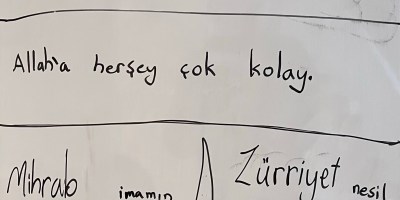 Allah'a herşey çok kolay.
Mihrab imamın Zürriyet nesil